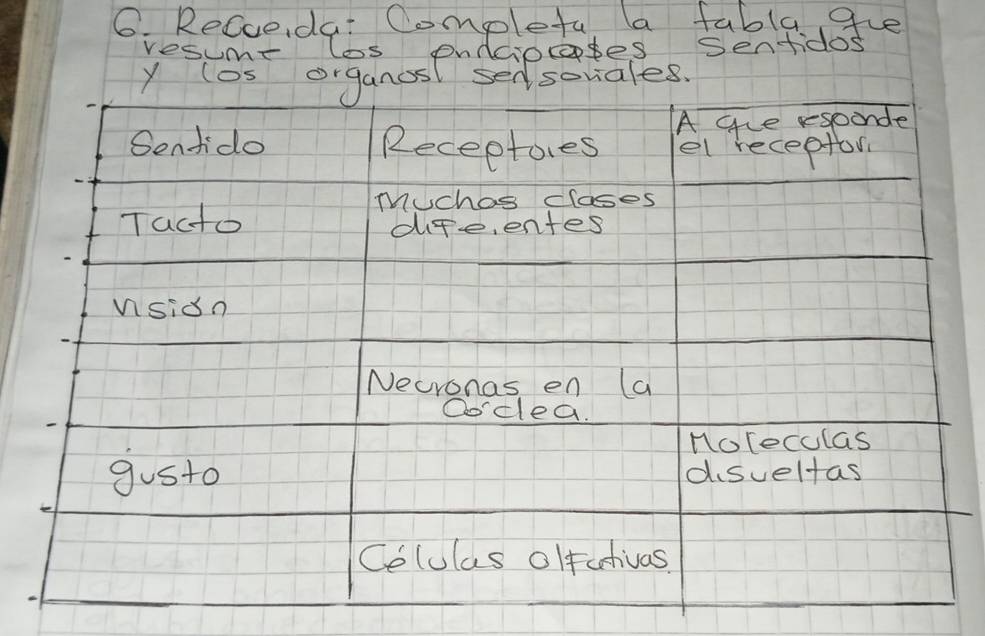 6. Recuerda: Completa la tabla que
resume los principales sentidos
y los organos sensoriales.
Sentido
Receptores
A que responde
el receptor.
Tacto
Muchas clases
diferentes
visión
Neuronas en la
Cóclea.
gusto
Moleculas
disueltas
Células olfativas.